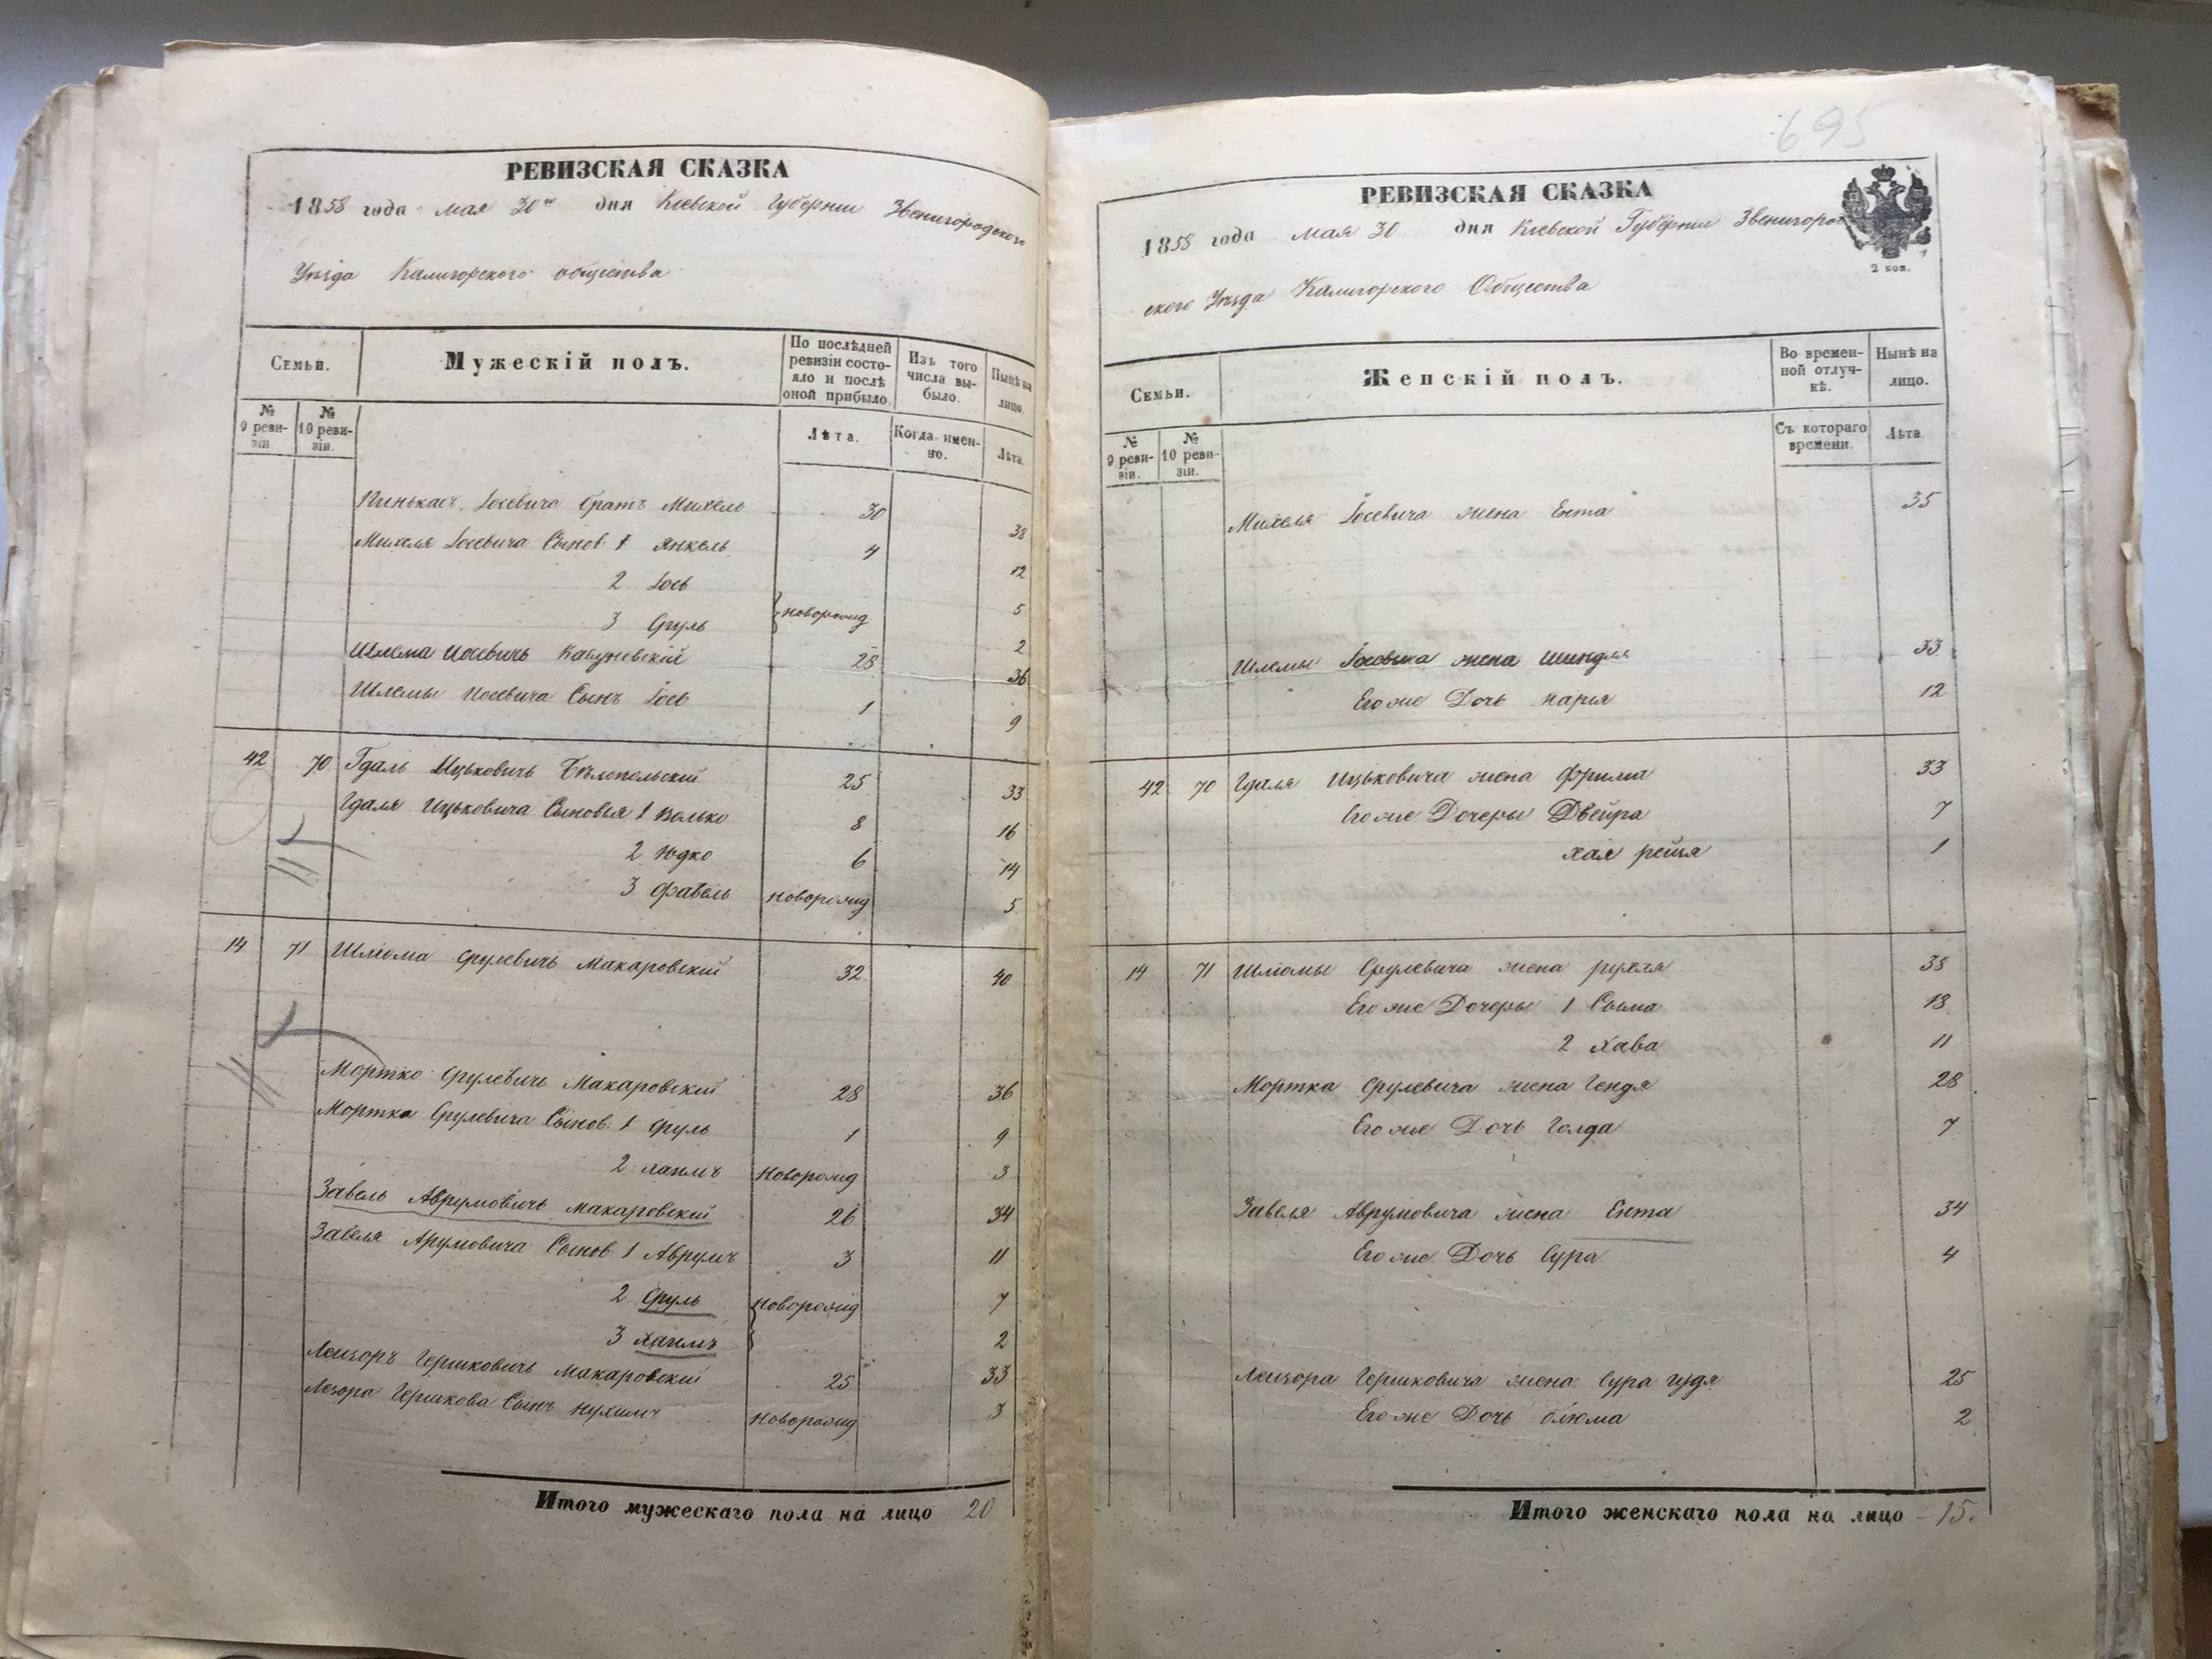 РЕВИЗСКАЯ СКАЗКА
1858 года мая 30го дня Кіевской Губерніи Звенигородского
Уѣзда Калигорского общества
Семьи.
Мужескій полъ.
По послѣдней ревизіи состояло и послѣ оной прибыло.
Изъ того числа выбыло.
Нынѣ на лицо.
№ 9 ревизіи.
№ 10 ревизіи.
Лѣта.
Когда именно.
Лѣта.
Пинькасъ Іосевича братъ Михель 30 38
Михеля Іосевича Сынов 1 Янкель 4 12
2 Іось новорожд 5
3 Сруль 2
Шлема Иосевичъ 28 36
Шлемы Иосевича Сынъ Іось 1 9
42 70 Гдаль Ицьковичь Бѣлопольскій 25 33
Гдаля Ицьковича Сыновья 1 Волько 8 16
2 Юдко 6 14
3 Фавель новорожд 5
14 71 Шлома Срулевичь Макаровскій 32 40
Мортко Срулевичь Макаровскій 28 36
Мортка Срулевича Сынов. 1 Сруль 1 9
2 Хаимъ Новорожд 3
Завель Аврумовичь Макаровскій 26 34
Завеля Арумовича Сынов 1 Аврумъ 3 11
2 Сруль новорожд 7
3 Хаимъ 2
Лейзоръ Гершковичь Макаровскій 25 33
Лезора Гершкова Сынъ Нухимъ Новорожд 3
Итого мужескаго пола на лицо 20
695
РЕВИЗСКАЯ СКАЗКА
2 коп.
1858 года мая 30 дня Кіевской Губерніи Звенигород
ского Уѣзда Калигорского Общества
Семьи.
Женскій полъ.
Во временной отлучкѣ.
Нынѣ на лицо.
№ 9 ревизіи.
№ 10 ревизіи.
Съ котораго времени.
Лѣта.
Михеля Іосевича жена Ента 35
Шлемы Іосевича жена Шиндля 33
Его же Дочь Марья 12
42 70 Гдаля Ицьковича жена Фрима 33
Его же Дочеры Двейра 7
Хая рейзя 1
14 71 Шломы Срулевича жена рухля 38
Его же Дочеры 1 Сыма 13
2 Хава 11
Мортка Срулевича жена Гендя 28
Его же Дочь Голда 7
Завеля Аврумовича жена Ента 34
Его же Дочь Сура 4
Лейзора Гершковича жена Сура гудя 25
Его же Дочь блюма 2
Итого женскаго пола на лицо 15.